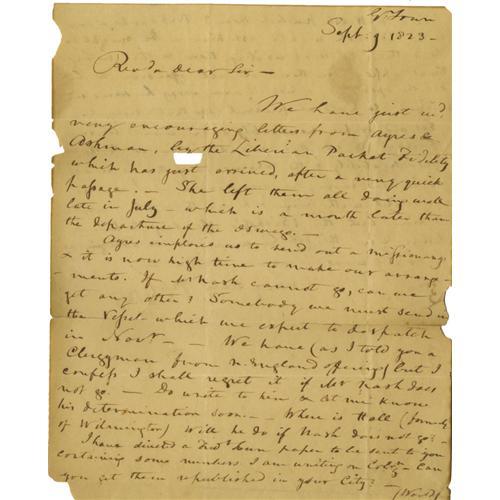 G. Town
Sept. 9. 1823 -
Revd & Dear Sir -
We have just recd
very encouraging letters from Ayres &
Ashman, by the Liberian Packet Fidelity
which has just arrived, after a very quick
passage. - She left them all doing well
late in July - which is a month later than
the departure of the Oswego. -
Ayres implores us to send out a missionary
& it is now high time to make our arrange-
ments. If Mr Nash cannot go, can we
get any other? Somebody we must send in
the Vessel - which we expect to despatch
in Novr - We have (as I told you a
Clergyman from N. England offering) but I
confess I shall regret it if Mr Nash does
not go. - Do write to him & let me know
his determination soon. - Where is Hall (formerly
of Wilmington) Will he do if Nash does not go? -
I have directed a Geo: Town paper to be sent to you
containing some numbers I am writing on Colo. Can
you get them republished in your City? -